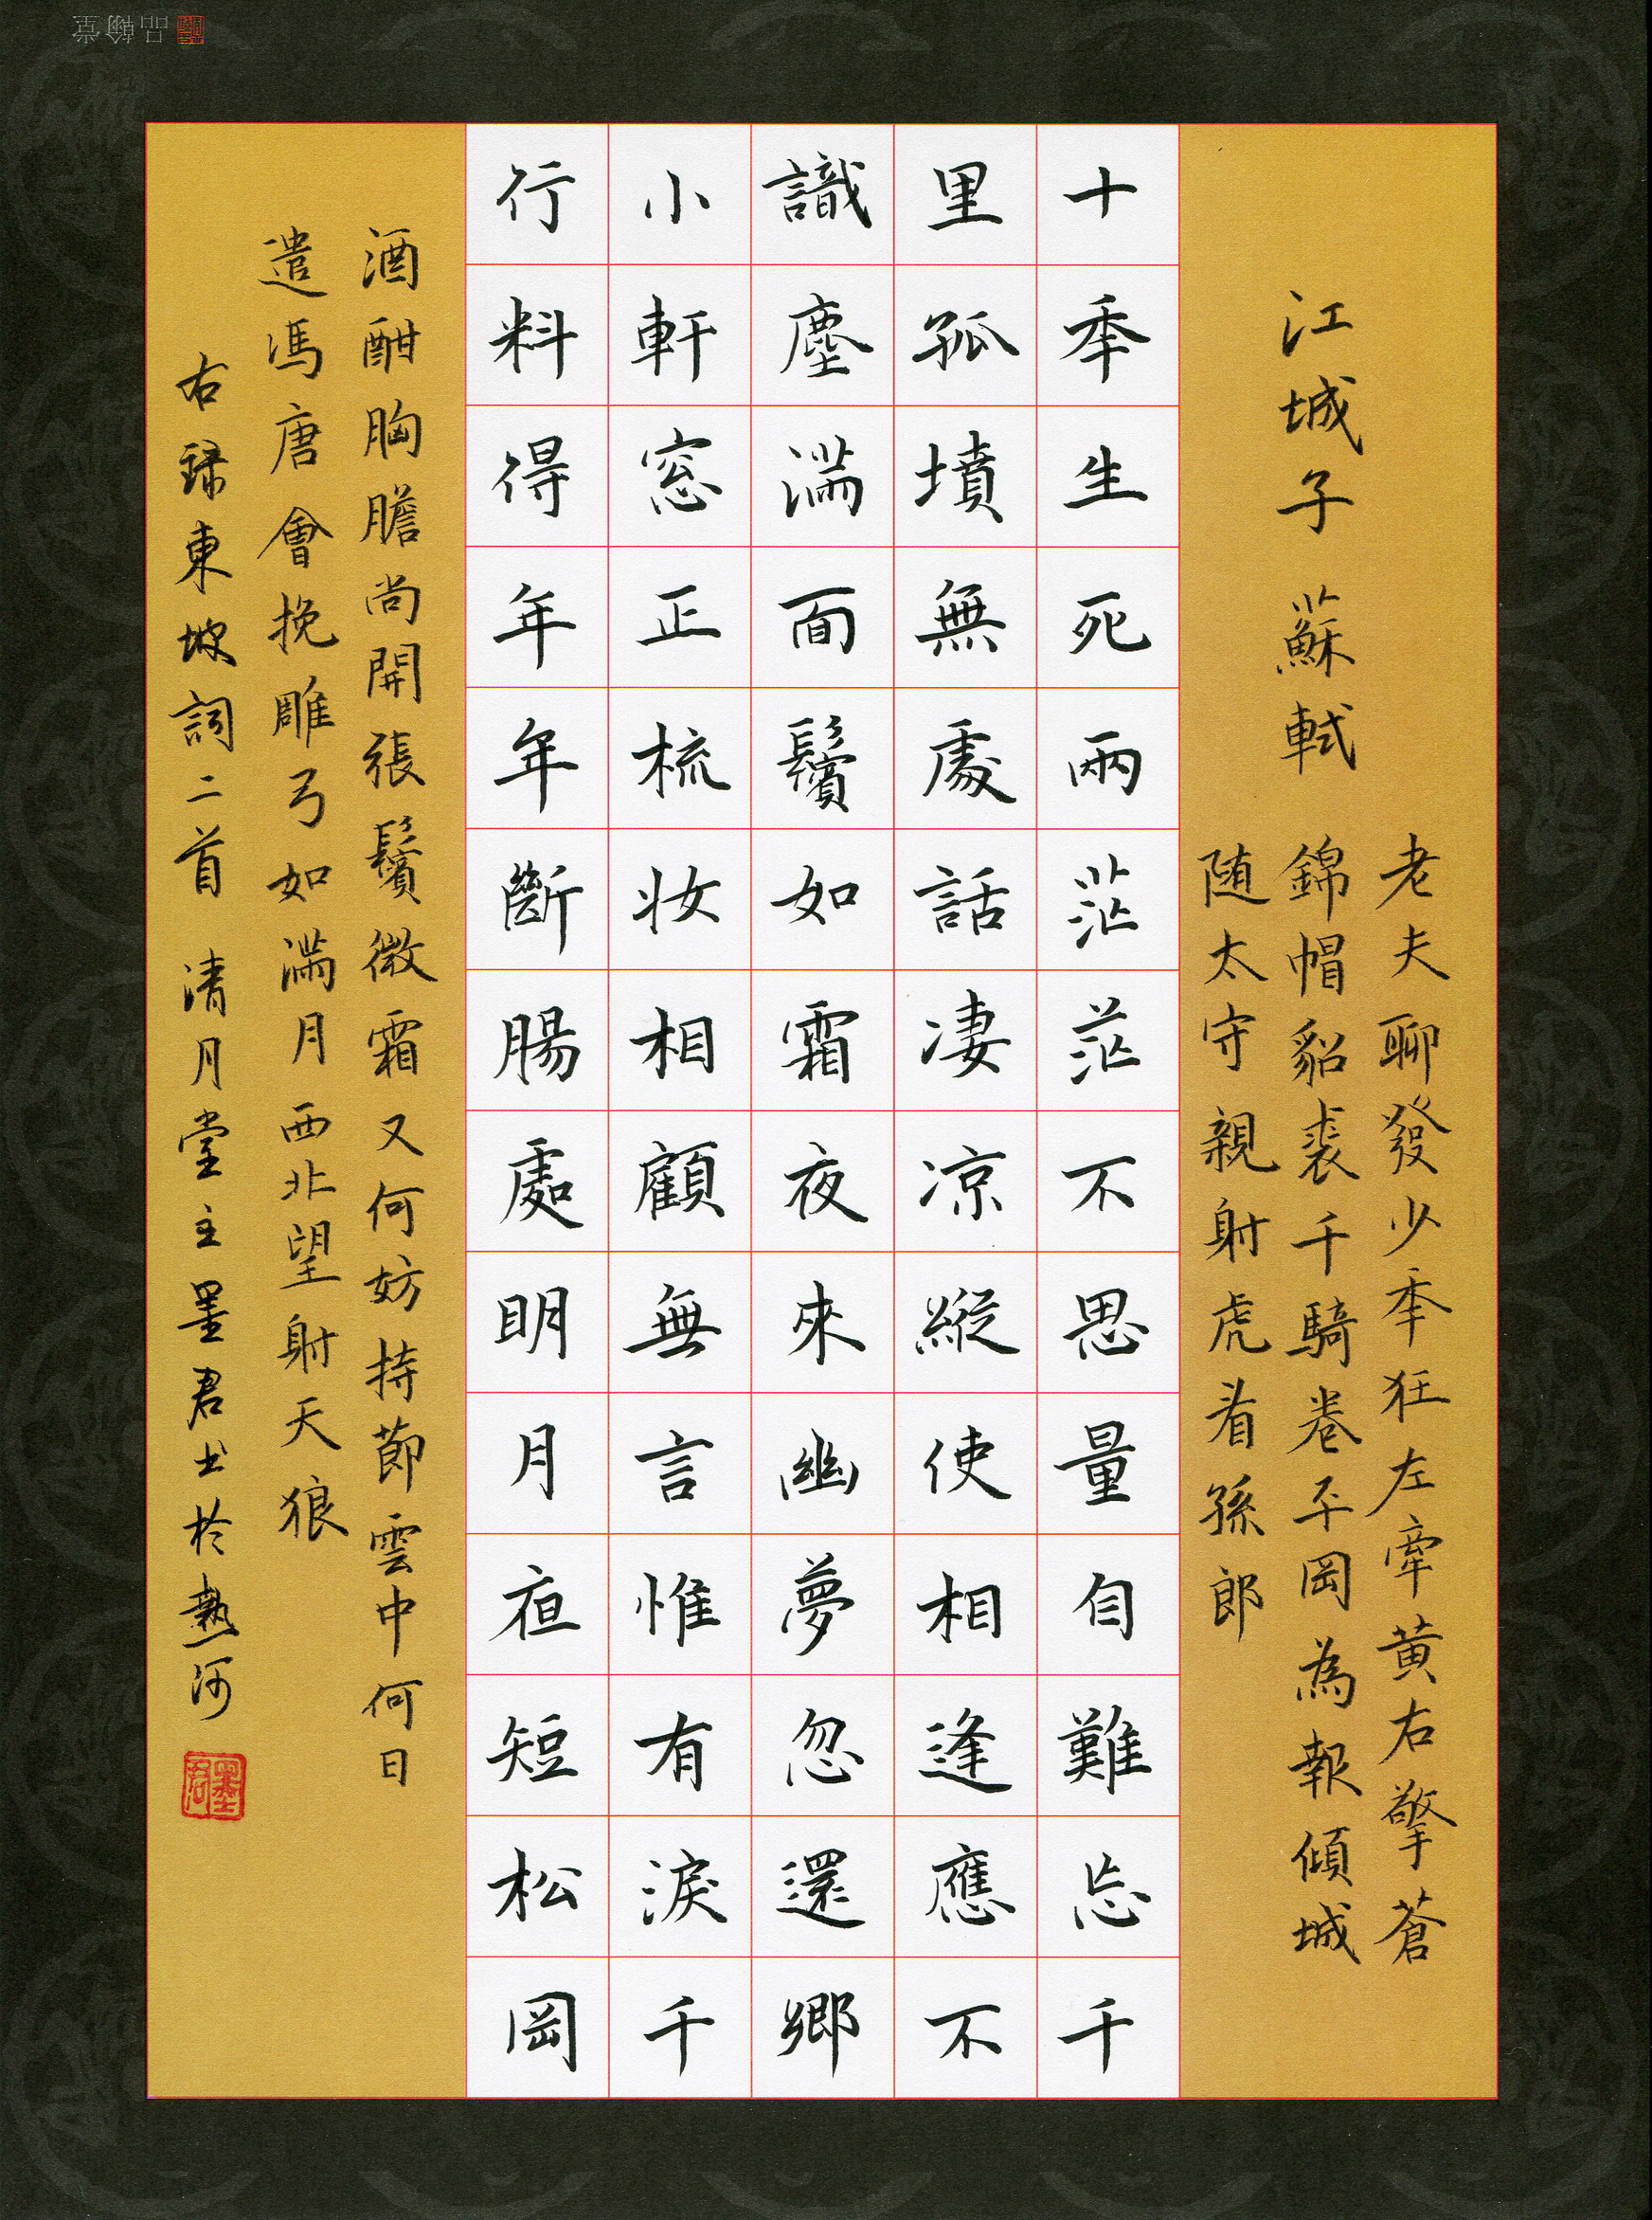 江城子 蘇軾
老夫聊發少秊狂左牽黃右擎蒼
錦帽貂裘千騎卷平岡為報傾城
随太守親射虎看孫郎
十秊生死兩茫茫不思量自難忘千
里孤墳無處話凄凉縱使相逢應不
識塵滿面鬢如霜夜來幽夢忽還鄉
小軒窓正梳妆相顧無言惟有淚千
行料得年年斷腸處明月夜短松岡
酒酣胸膽尚開張鬢微霜又何妨持節雲中何日
遣馮唐會挽雕弓如滿月西北望射天狼
右録東坡詞二首 清月堂主墨君书於熱河
墨君
品翰堂